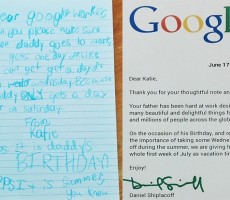 Dear google worker
you please make sure
daddy goes to work
gets one day off like
he can get a day off
on wednesday. Because
daddy ONLY gets a day
off on saturday.
From
Katie
P.S. it is daddy's
BIRTHDAY!
it is summer
you know
Google
June 17
Dear Katie,
Thank you for your thoughtful note and
Your father has been hard at work design
many beautiful and delightful things for
and millions of people across the globe
On the occasion of his Birthday, and
the importance of taking some Wedne
off during the summer, we are giving hi
whole first week of July as vacation time
Enjoy!
Daniel Shiplacoff